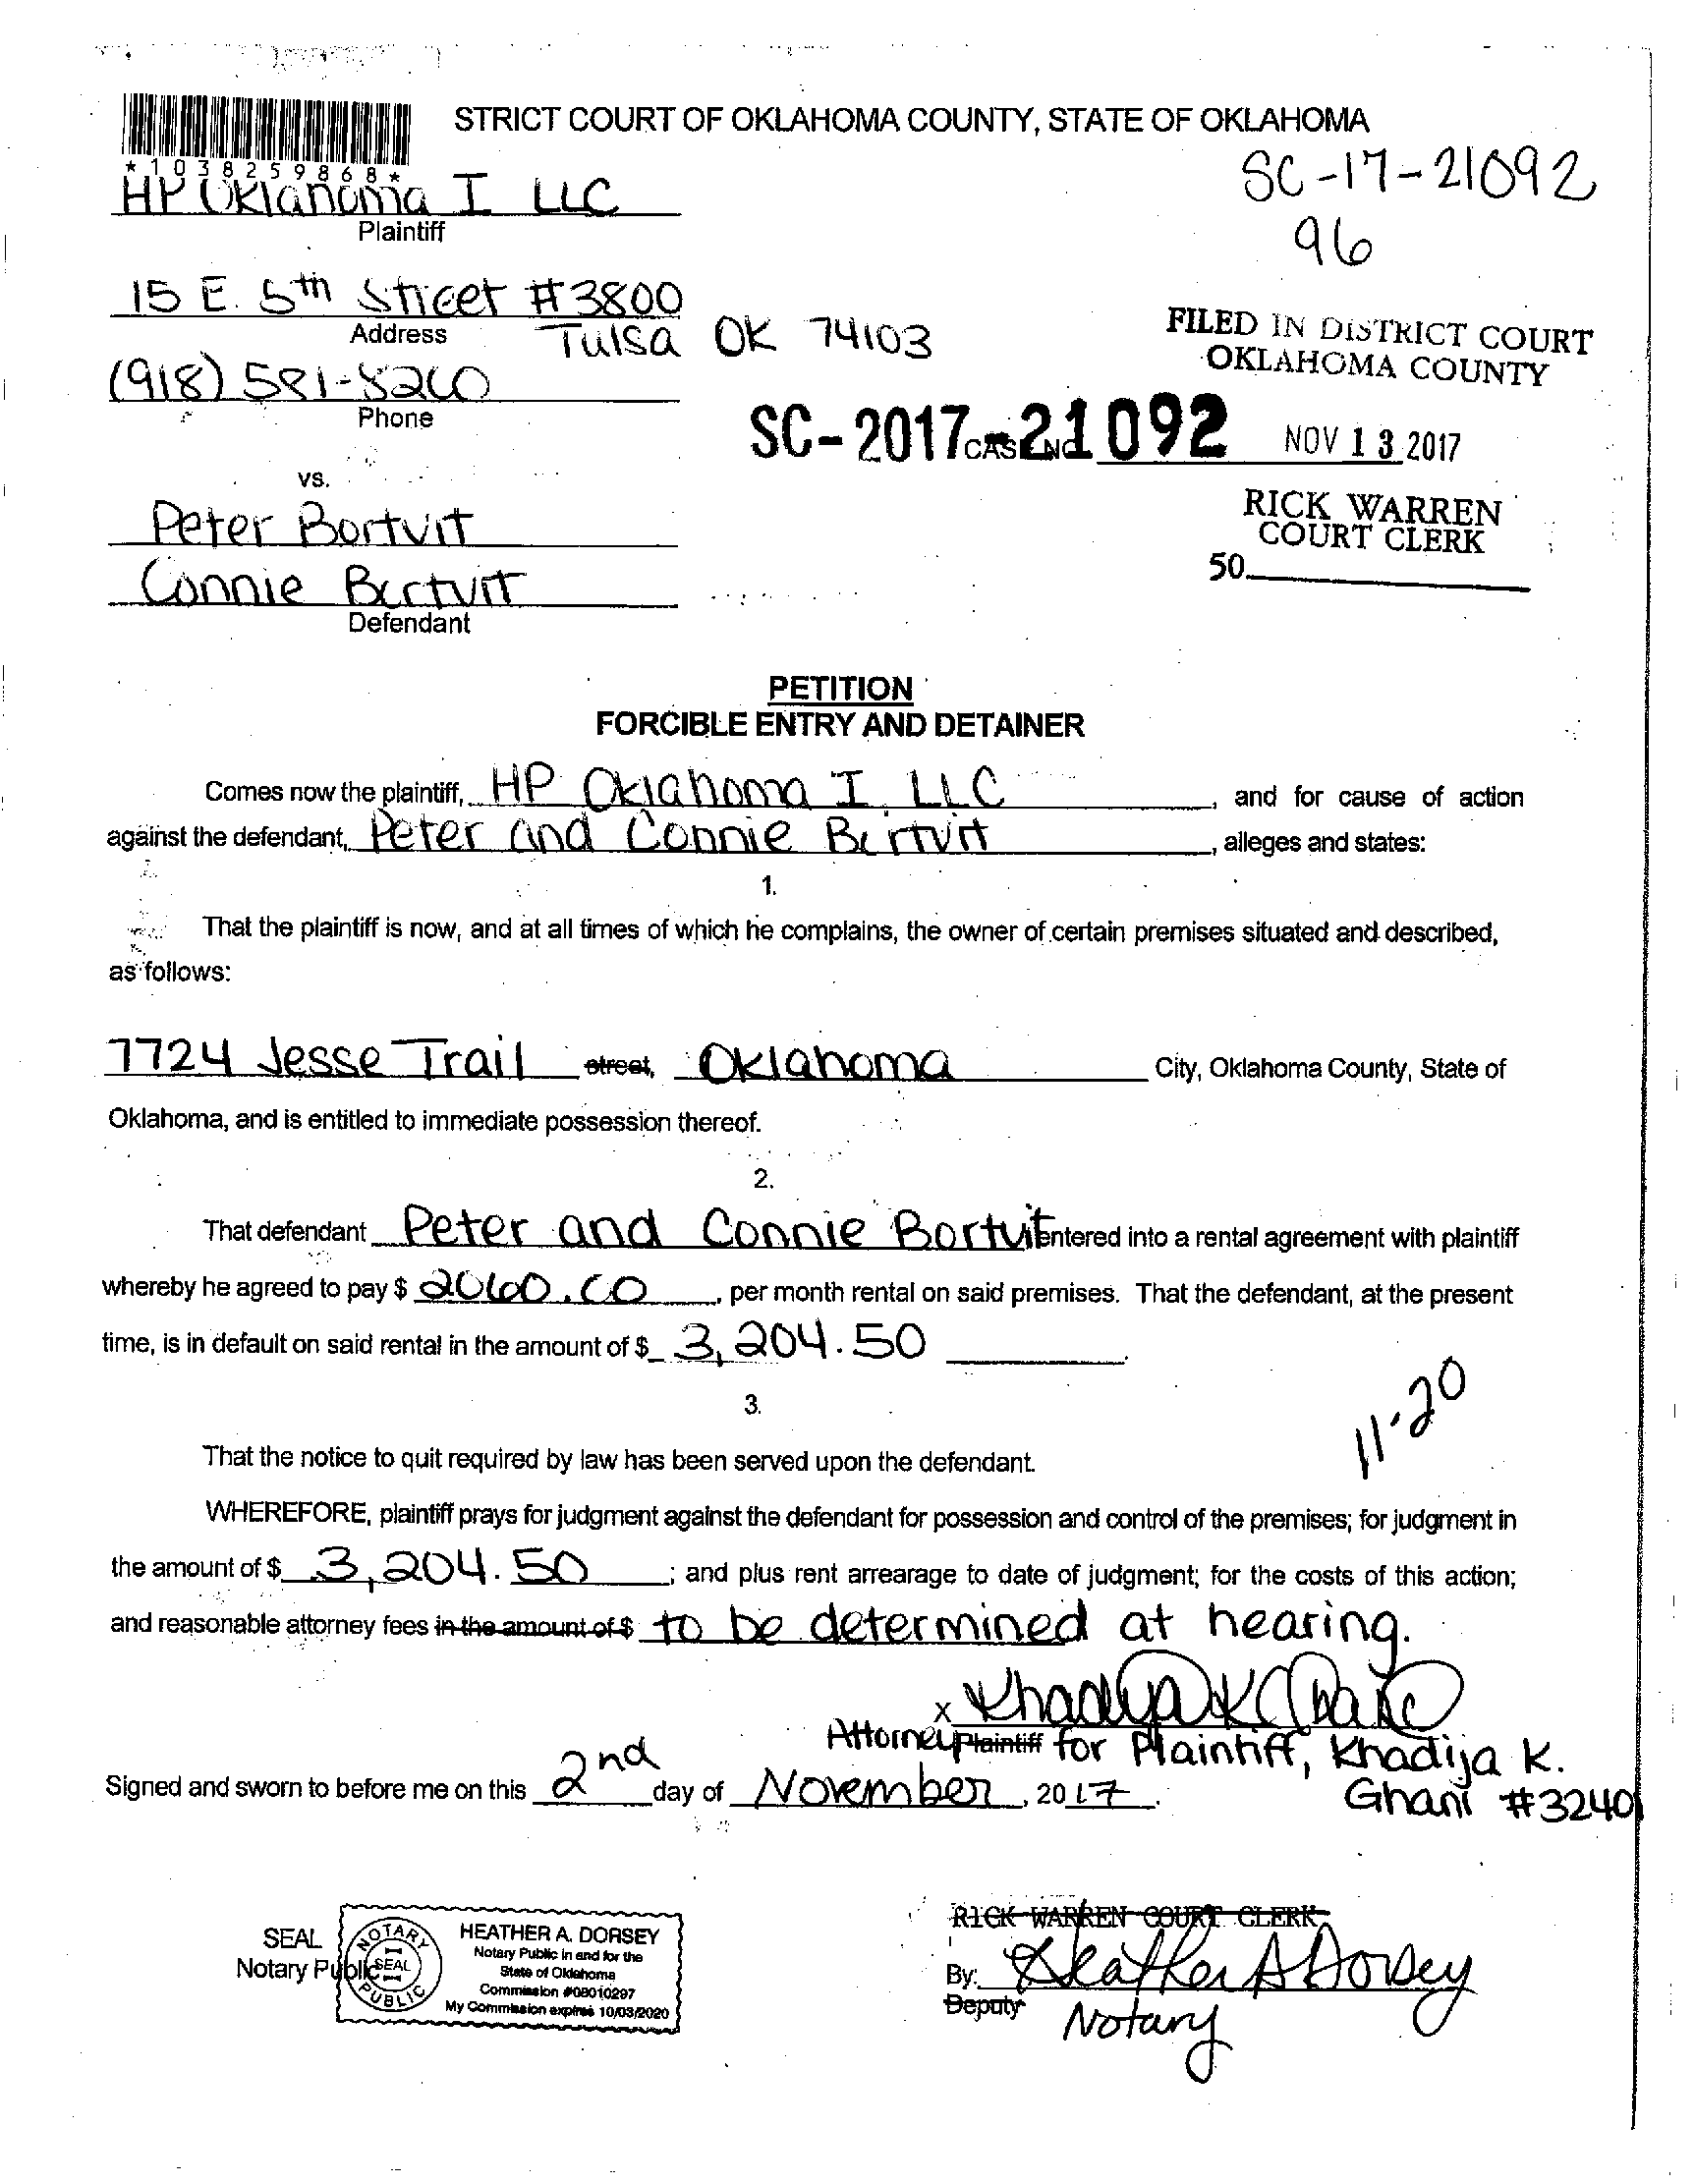 STRICT COURT OF OKLAHOMA COUNTY, STATE OF OKLAHOMA
*1038259868*
SC-17-21092
HP Oklahoma I LLC
Plaintiff
96
15 E. 5th Street #3800
Address
Tulsa OK 74103
FILED IN DISTRICT COURT
OKLAHOMA COUNTY
(918) 581-8260
Phone
SC-2017-21092
CASE NO.
NOV 13 2017
vs.
RICK WARREN
COURT CLERK
Peter Bortvit
50
Connie Bortvit
Defendant
PETITION
FORCIBLE ENTRY AND DETAINER
Comes now the plaintiff, HP Oklahoma I, LLC, and for cause of action
against the defendant, Peter and Connie Bortvit, alleges and states:
1.
That the plaintiff is now, and at all times of which he complains, the owner of certain premises situated and described,
as follows:
7724 Jesse Trail street, Oklahoma City, Oklahoma County, State of
Oklahoma, and is entitled to immediate possession thereof.
2.
That defendant Peter and Connie Bortvit entered into a rental agreement with plaintiff
whereby he agreed to pay $ 2060.00, per month rental on said premises. That the defendant, at the present
time, is in default on said rental in the amount of $ 3,204.50.
3.
11-20
That the notice to quit required by law has been served upon the defendant.
WHEREFORE, plaintiff prays for judgment against the defendant for possession and control of the premises; for judgment in
the amount of $ 3,204.50; and plus rent arrearage to date of judgment; for the costs of this action;
and reasonable attorney fees in the amount of $ to be determined at hearing.
x Khadija K Ghani
Attorney Plaintiff for Plaintiff, Khadija K.
Ghani #3240
Signed and sworn to before me on this 2nd day of November, 2017.
RICK WARREN COURT CLERK
SEAL
Notary Public
NOTARY PUBLIC
SEAL
HEATHER A. DORSEY
Notary Public in and for the
State of Oklahoma
Commission #08010297
My Commission expires 10/03/2020
By: Heather A Dorsey
Deputy Notary